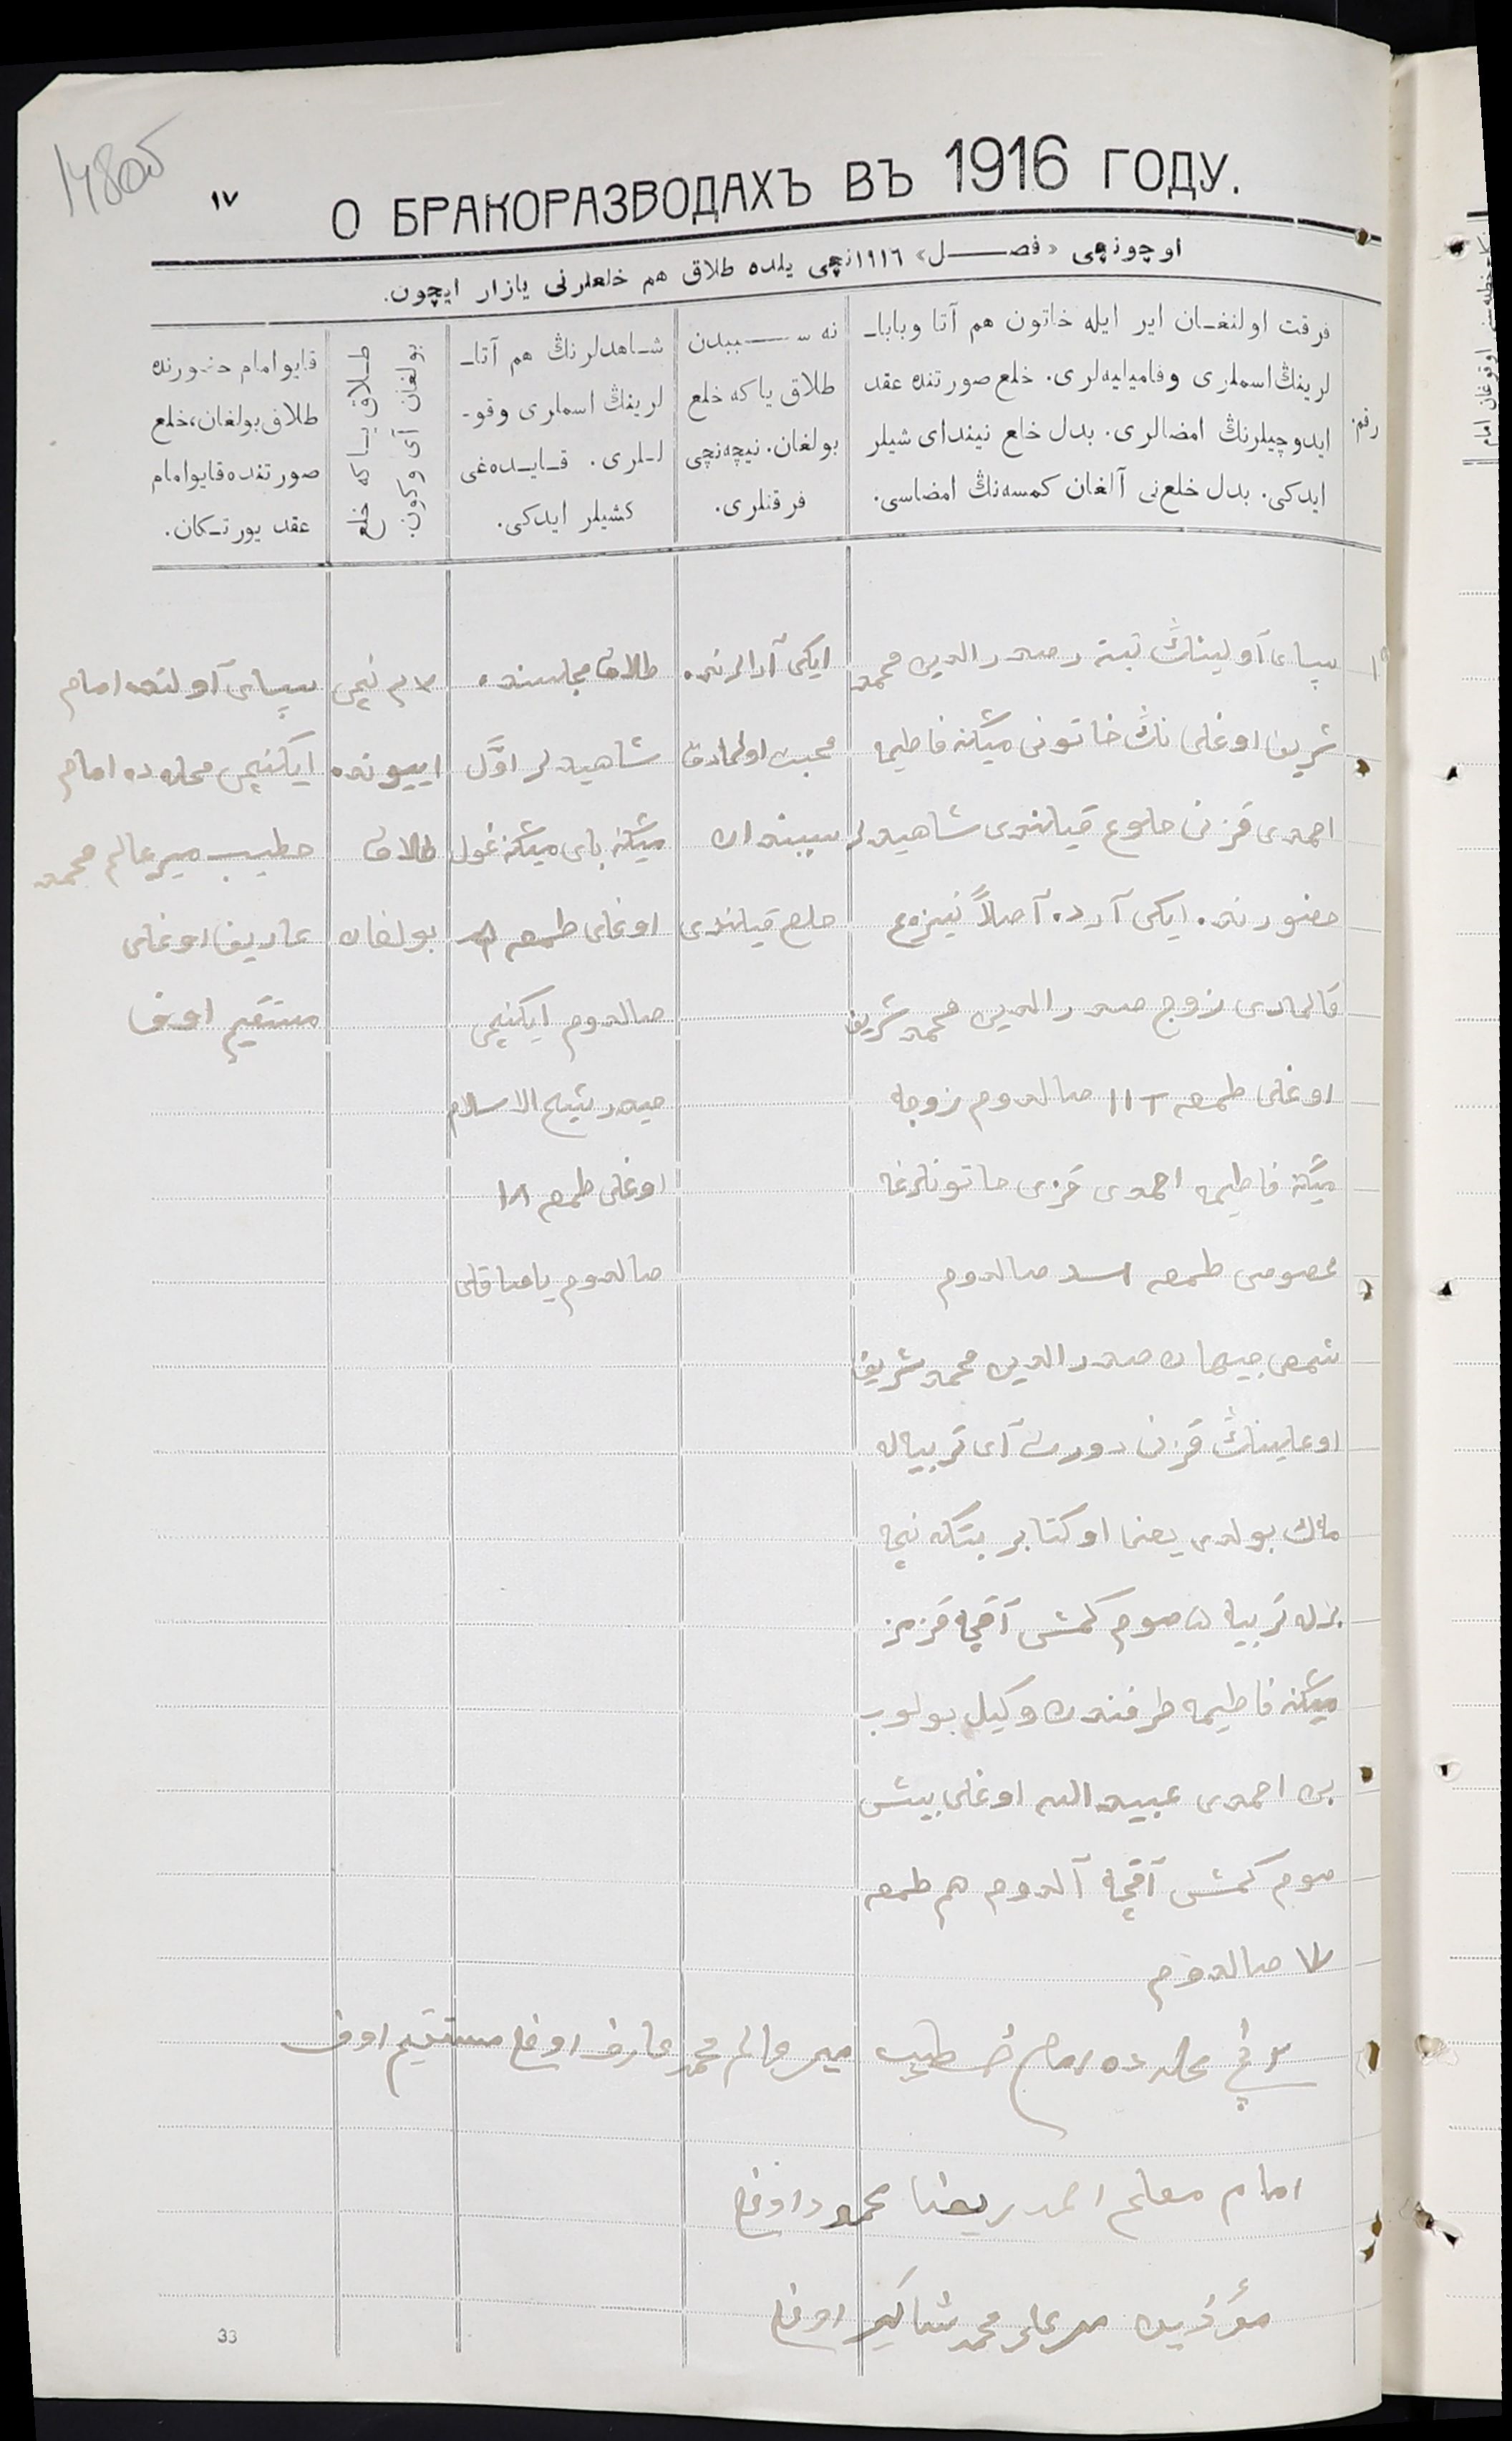 148об
١٧
О БРАКОРАЗВОДАХЪ ВЪ 1916 ГОДУ.
اوچونچی «فصـــل» ١٩١٦نچی یلده طلاق هم خلعلرنی یازار ایچون.
رقم.
فرقت اولنغـان ایر ایله خاتون هم آتا وبابا‌ـ
لرینڭ اسملری وفامیلیه‌لری. خلع صورتنده عقد
ایدوچیلرنڭ امضالری. بدل خلع نیندای شیلر
ایدکی. بدل خلع‌نی آلغان کمسه‌نڭ امضاسی.
نه ســـببدن
طلاق یاکه خلع
بولغان. نیچه‌نچی
فرقتلری.
شـاهدلرنڭ هم آتا‌ـ
لرینڭ اسملری وفو‌ـ
ـلـلری. قـایـده‌غی
کشیلر ایدکی.
طـلاق یـاکه خلع
بولغان آی وکون.
قایو امام حضورنده
طلاق بولغان، خلع
صورتنده قایو امام
عقد یورتـکان.
١
سپای آولینڭ تبته ر صدر الدین محمد
شریف اوغلی نڭ خاتونی میڭنه فاطیما
احمدی قزنی خلوع قیلندی شاهیدلر
حضورنده. ایکی آرده آصلاً نیزوع
قالمادی زوج صدر الدین محمد شریف
اوغلی طمعه ١١٢ صالدوم زوجه
میڭنه فاطیمه احمدی قزی خاتونلرغه
مخصوص طمعه صالدوم
شمس جیهان صدر الدین محمد شریف
اوغلینڭ قزنی دورت آی تربیاله
مك بولدی یعنی اوکتابر بتکه نچه
بزله تربیه ٥ صوم کمش آقچه قزمز
میڭنه فاطیمه طرفندن وکیل بولوب
بن احمدی عبید الله اوغلی بیش
صوم کمش آقچه آلدوم هم طمعه
صالدوم
ایکی آرالرنده
محبت اولمادق
سببندان
خلع قیلندی
طلاق مجلسنده
شاهیدلر اوّل
میڭنه بای میڭنه غول
اوغلی طمعه
صالدوم ایکنچی
حیدر شیخ الاسلام
اوغلی طمعه ١٨
صالدوم یاصاقلی
نچی
اییونده
طلاق
بولغان
سپای آولنده امام
ایکنچی محله ده امام
خطیب میرعالم محمد
عاریف اوغلی
مستقیم اوف
٢نچی محله ده امام خطیب میرعالم محمد عارف اوغلی مستقیم اوف
امام معلم احمد ریضا محمود اوغلی
مؤذین محمد شاکیر اوغلی
33